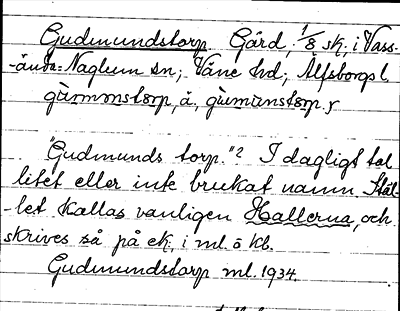 Gudmundstorp Gård, 1/8 sk. i Vass-
-ända-Naglum sn; Väne hd; Älfsborgs l.
gùmmənstɔrp, å, gùmunstɔrp. y
"Gudmunds torp."? I dagligt tal
litet eller inte brukat namn. Stäl-
-let kallas vanligen Hallerna, och
skrives så på ek. i ml. o kb.
Gudmundstorp ml. 1934.